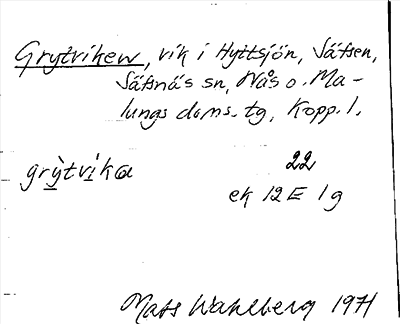 Grytviken, vik i Hyttsjön, Sätsen,
Säfsnäs sn, Nås o. Ma-
lungs doms. tg, Kopp. l.
grỳtvika 22
ek 12 E 1 g
Mats Wahlberg 1971